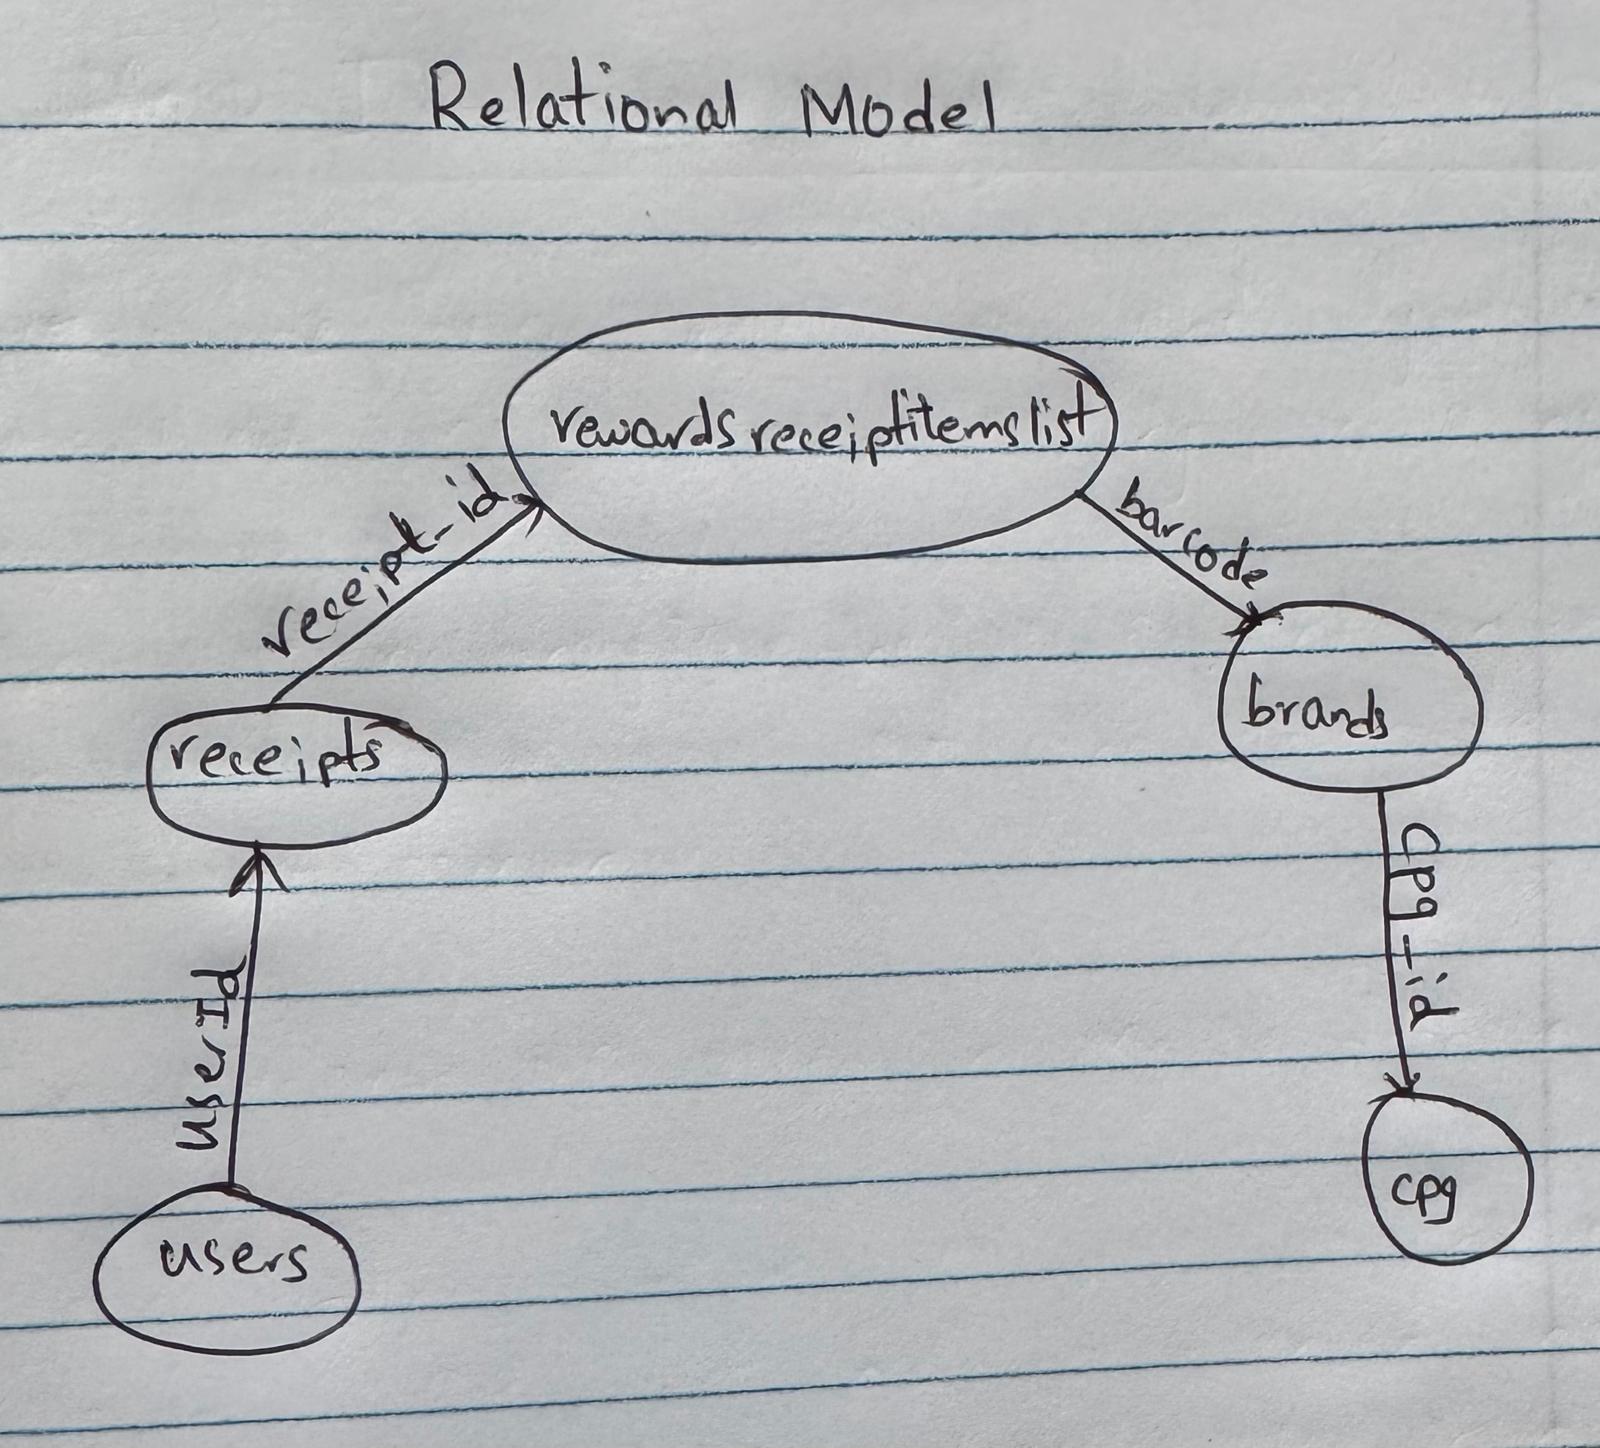 Relational Model
rewardsreceiptitemslist
receipt_id
barcode
brands
receipts
cpg_id
UserId
cpg
users